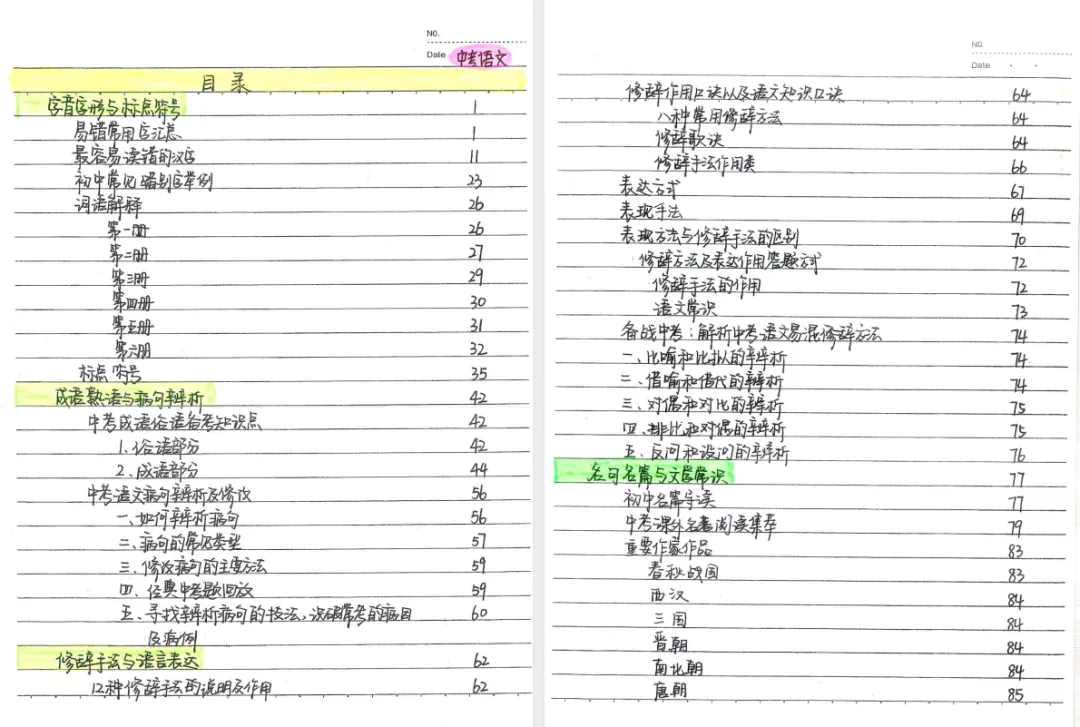 NO.
Date 中考语文
目录
字音字形与标点符号 1
易错常用字汇总 1
最容易读错的汉字 11
初中常见错别字举例 23
词语解释 26
第一册 26
第二册 27
第三册 29
第四册 30
第五册 31
第六册 32
标点符号 35
成语熟语与病句辨析 42
中考成语俗语备考知识点 42
1.俗语部分 42
2.成语部分 44
中考语文病句辨析及修改 56
一、如何辨析病句 56
二、病句的常见类型 57
三、修改病句的主要方法 59
四、经典中考题回放 59
五、寻找辨析病句的技法,识破常考的病因 60
及病例
修辞手法与语言表达 62
12种修辞手法的说明及作用 62
NO.
Date
修辞作用口诀以及语文知识口诀 64
八种常用修辞方法 64
修辞歌诀 64
修辞手法作用类 66
表达方式 67
表现手法 69
表现方法与修辞手法的区别 70
修辞方法及表达作用答题方式 72
修辞手法的作用 72
语文常识 73
备战中考:解析中考语文易混修辞方法 74
一、比喻和比拟的辨析 74
二、借喻和借代的辨析 74
三、对偶和对比的辨析 75
四、排比和对偶的辨析 75
五、反问和设问的辨析 76
名句名篇与文学常识 77
初中名篇导读 77
中考课外名著阅读集萃 79
重要作家作品 83
春秋战国 83
西汉 84
三国 84
晋朝 84
南北朝 84
唐朝 85